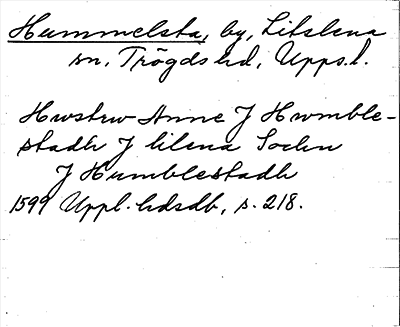 Hummelsta, by, Litslena
sn, Trögds hd, Upps.l.
Hwstrw Anne J Hwmble-
stadh J lilena Sochn
J Humblestadh
1599 Uppl. hdsdb, s. 218.